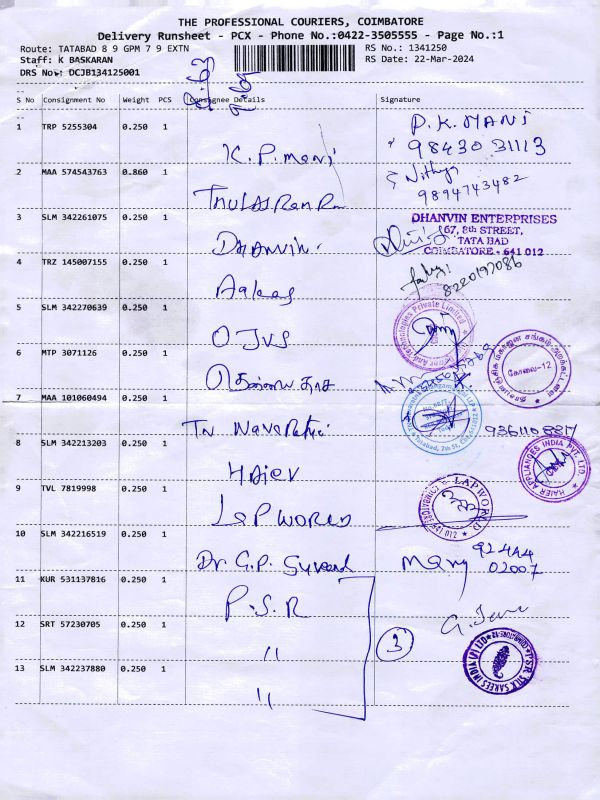 THE PROFESSIONAL COURIERS, COIMBATORE
Delivery Runsheet - PCX - Phone No.:0422-3505555 - Page No.:1
Route: TATABAD 8 9 GPM 7 9 EXTN
RS No.: 1341250
Staff: K BASKARAN
RS Date: 22-Mar-2024
DRS No.: DCJB134125001
S No Consignment No Weight PCS Consignee Details Signature
1 TRP 5255304 0.250 1
K.P.mani
P.K.MANI
98430 31113
2 MAA 574543763 0.860 1
Nithya
9894743482
3 SLM 342261075 0.250 1
DHANVIN
DHANVIN ENTERPRISES
167, 8th STREET,
TATA BAD
COIMBATORE - 641 012
4 TRZ 145007155 0.250 1
8220197086
5 SLM 342270639 0.250 1
OJVS
6 MTP 3071126 0.250 1
கோவை-12
7 MAA 101060494 0.250 1
TN
9361108817
8 SLM 342213203 0.250 1
HAIER
HAIER APPLIANCES INDIA PVT. LTD.
9 TVL 7819998 0.250 1
LAP WORLD
LAPWORLD
10 SLM 342216519 0.250 1
Dr. G.P.
Mary
92444
02007
11 KUR 531137816 0.250 1
P.S.R
12 SRT 57230705 0.250 1
"
3
P.S.R SILK SAREES INDIA (P) LTD
13 SLM 342237880 0.250 1
"